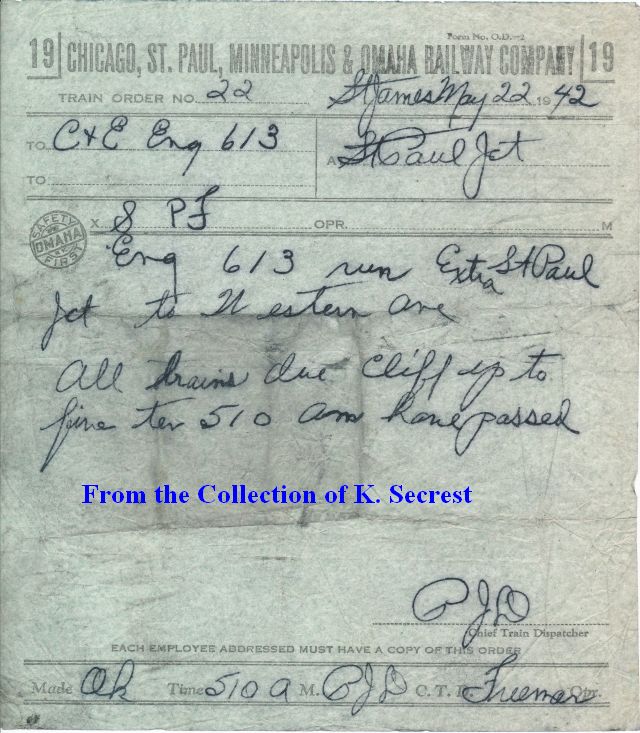 Form No. O.D.-2
19 CHICAGO, ST. PAUL, MINNEAPOLIS & OMAHA RAILWAY COMPANY 19
TRAIN ORDER NO. 22 St James May 22 1942
TO C & E Eng 613 At St Paul Jct
TO
X S P F OPR. M
SAFETY OMAHA FIRST
Eng 613 run Extra St Paul
Jct to Western Ave
All trains due Cliff up to
five ten 510 am have passed
From the Collection of K. Secrest
PJD
Chief Train Dispatcher
EACH EMPLOYEE ADDRESSED MUST HAVE A COPY OF THIS ORDER
Made Ok Time 510 a M. PJD C. T. D. Freeman Opr.